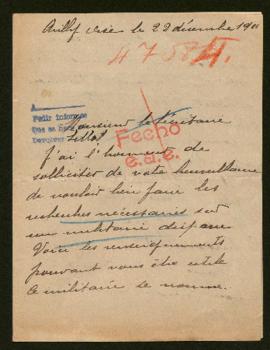 le 22 décembre 19
Fecho
e.a.e.
Monsieur le Secrétaire
J'ai l'honneur de
solliciter de votre bienveillance
de vouloir bien faire les
recherches nécessaires sur
un militaire disparu
Voici les renseignements
pouvant vous être utile
Ce militaire se nomme.